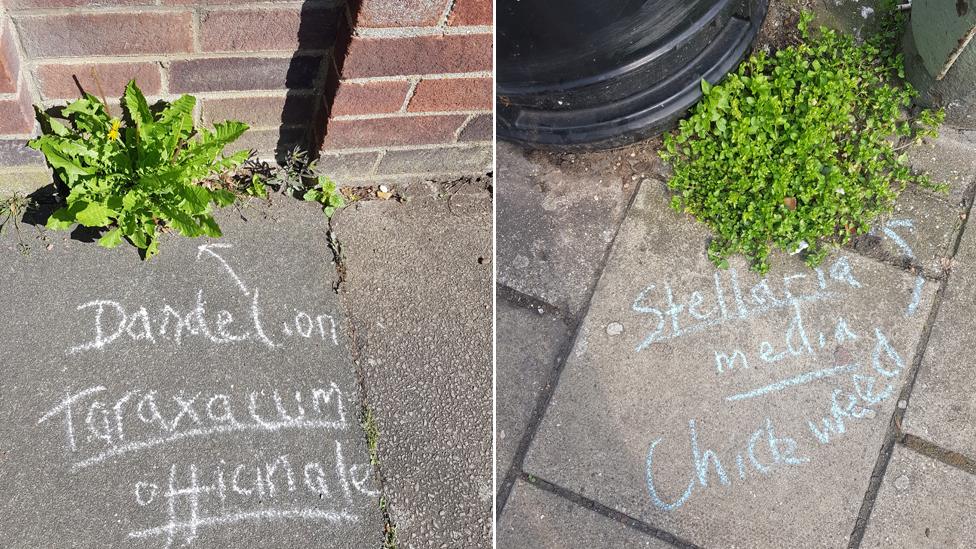 Dandelion
Taraxacum
officinale
Stellaria
media
Chickweed